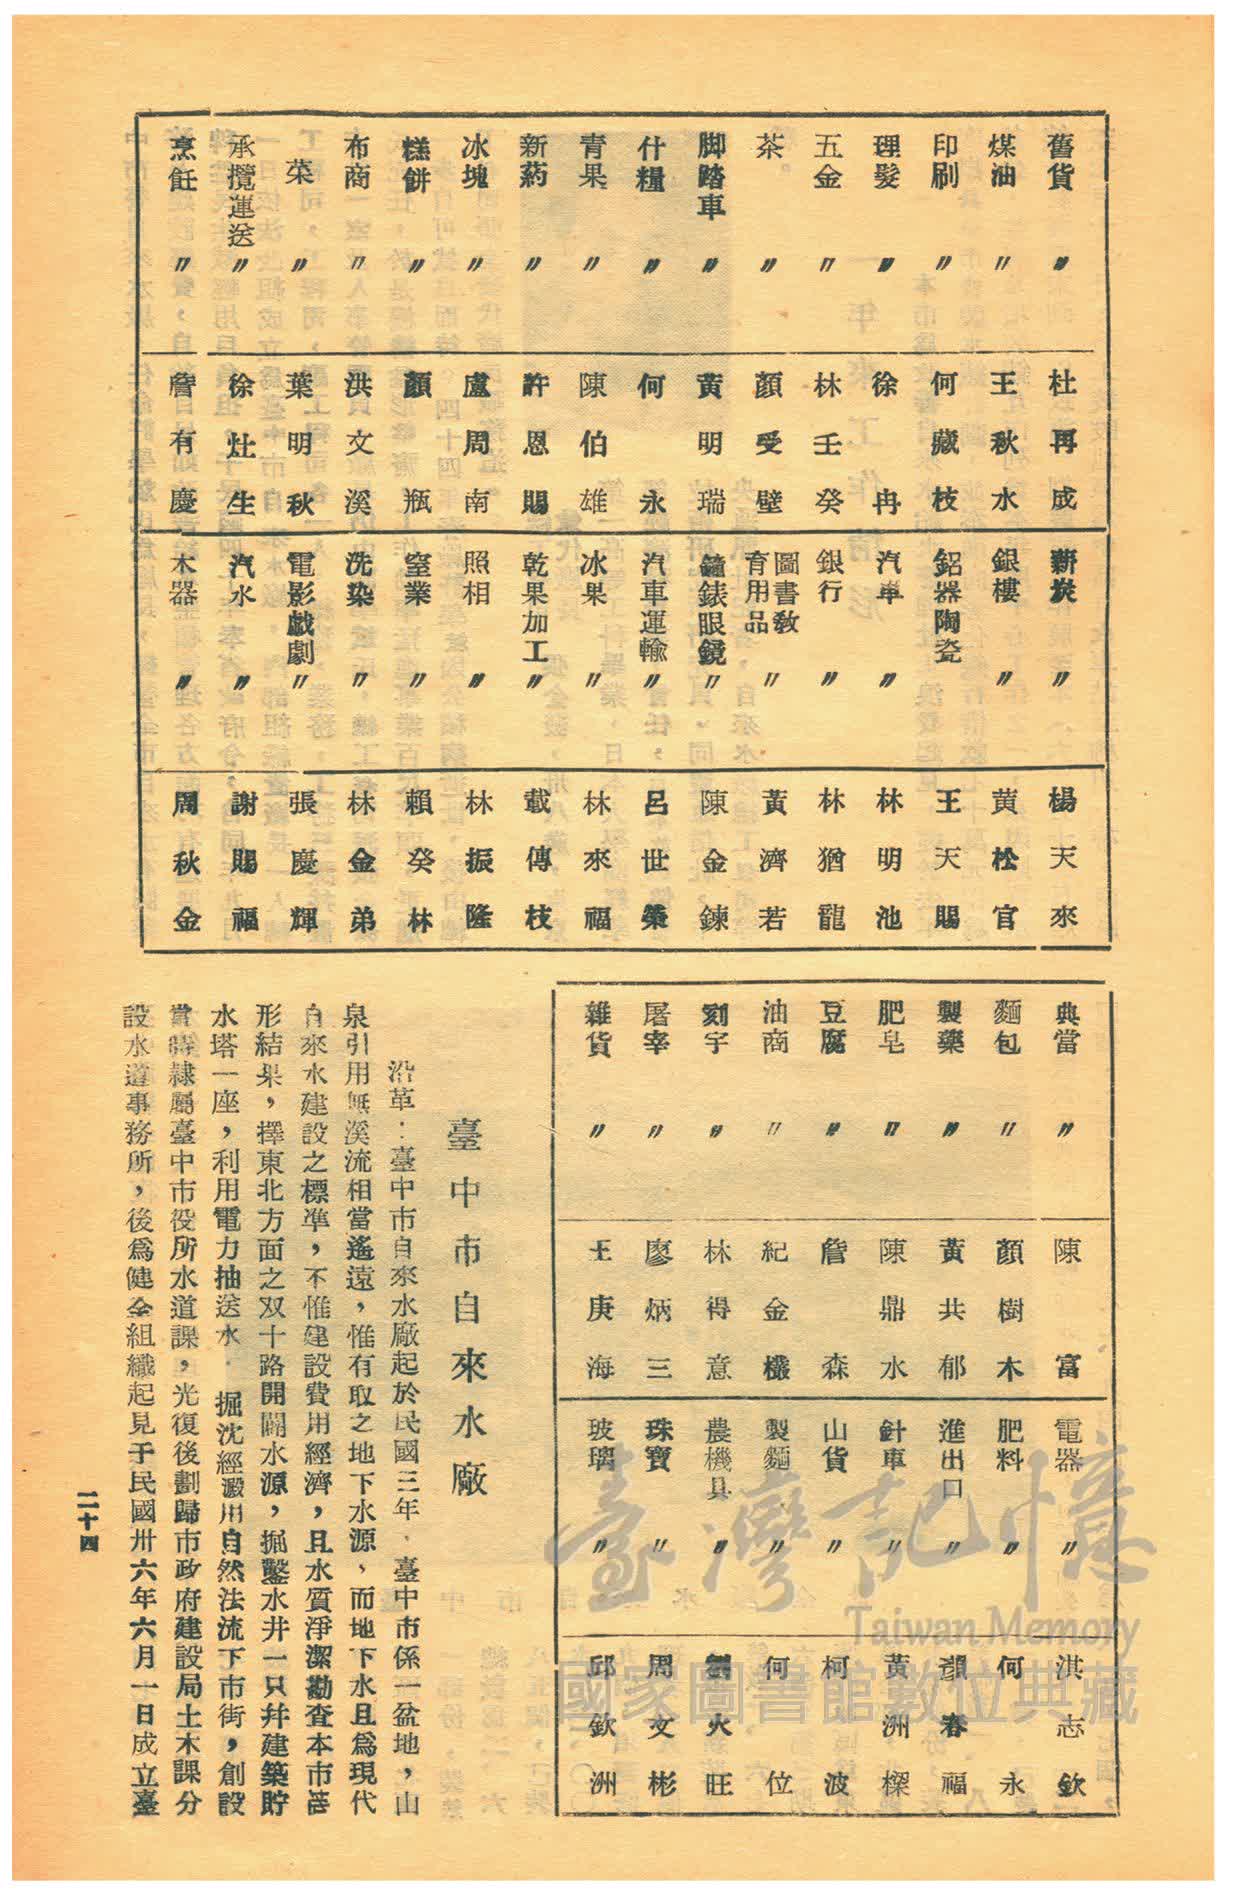 舊貨 〃 杜再成
煤油 〃 王秋水
印刷 〃 何藏枝
理髮 〃 徐冉
五金 〃 林壬癸
茶 〃 顏受壁
脚踏車 〃 黃明瑞
什糧 〃 何永
青果 〃 陳伯雄
新葯 〃 許恩賜
冰塊 〃 盧周南
糕餅 〃 顏瓶
布商 〃 洪文溪
菜 〃 葉明秋
承攬運送 〃 徐灶生
烹飪 〃 詹有慶
薪炭 〃 楊天來
銀樓 〃 黃松官
鋁器陶瓷 〃 王天賜
汽車 〃 林明池
銀行 〃 林猶龍
圖書敎育用品 〃 黃濟若
鐘錶眼鏡 〃 陳金鍊
汽車運輸 〃 呂世榮
冰果 〃 林來福
乾果加工 〃 戴傳枝
照相 〃 林振隆
窰業 〃 賴癸林
洗染 〃 林金弟
電影戱劇 〃 張慶輝
汽水 〃 謝賜福
木器 〃 周秋金
典當 〃 陳富
麵包 〃 顏樹木
製藥 〃 黃共郁
肥皂 〃 陳鼎水
豆腐 〃 詹森
油商 〃 紀金
刻字 〃 林得意
屠宰 〃 廖炳三
雜貨 〃 王庚海
電器 〃 洪志欽
肥料 〃 何永
進出口 〃 賴春福
針車 〃 黃洲樑
山貨 〃 柯波
製麵 〃 何位
農機具 〃 劉火旺
珠寶 〃 周文彬
玻璃 〃 邱欽洲
臺中市自來水廠
沿革：臺中市自來水廠起於民國三年．臺中市係一盆地，山
泉引用無溪流相當遙遠，惟有取之地下水源、而地下水且爲現代
自來水建設之標凖，不惟建設費用經濟，且水質淨潔勘查本市
形結果，擇東北方面之双十路開闢水源，掘鑿水井一只幷建築貯
水塔一座，利用電力抽送水．掘沈經澱用自然法流下市街，創設
當時隷屬臺中市役所水道課，光復後劃歸市政府建設局土木課分
設水道事務所，後爲健全組織起見于民國卅六年六月一日成立臺
二十四
臺灣記憶
Taiwan Memory
國家圖書館數位典藏